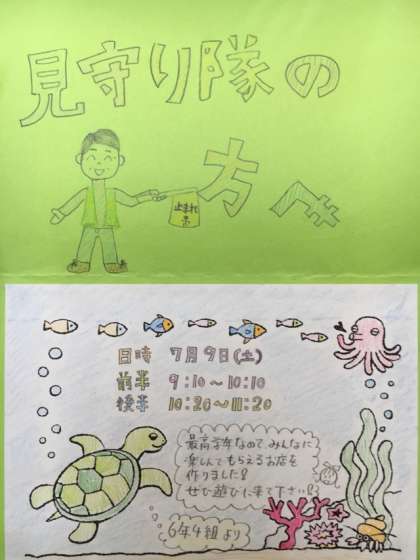 見守り隊の
方へ
止まれ
日時 7月9日(土)
前半 9:10～10:10
後半 10:20～11:20
最高学年なので、みんなに
楽しんでもらえるお店を
作りました!
ぜひ遊びに来て下さい!
6年4組より